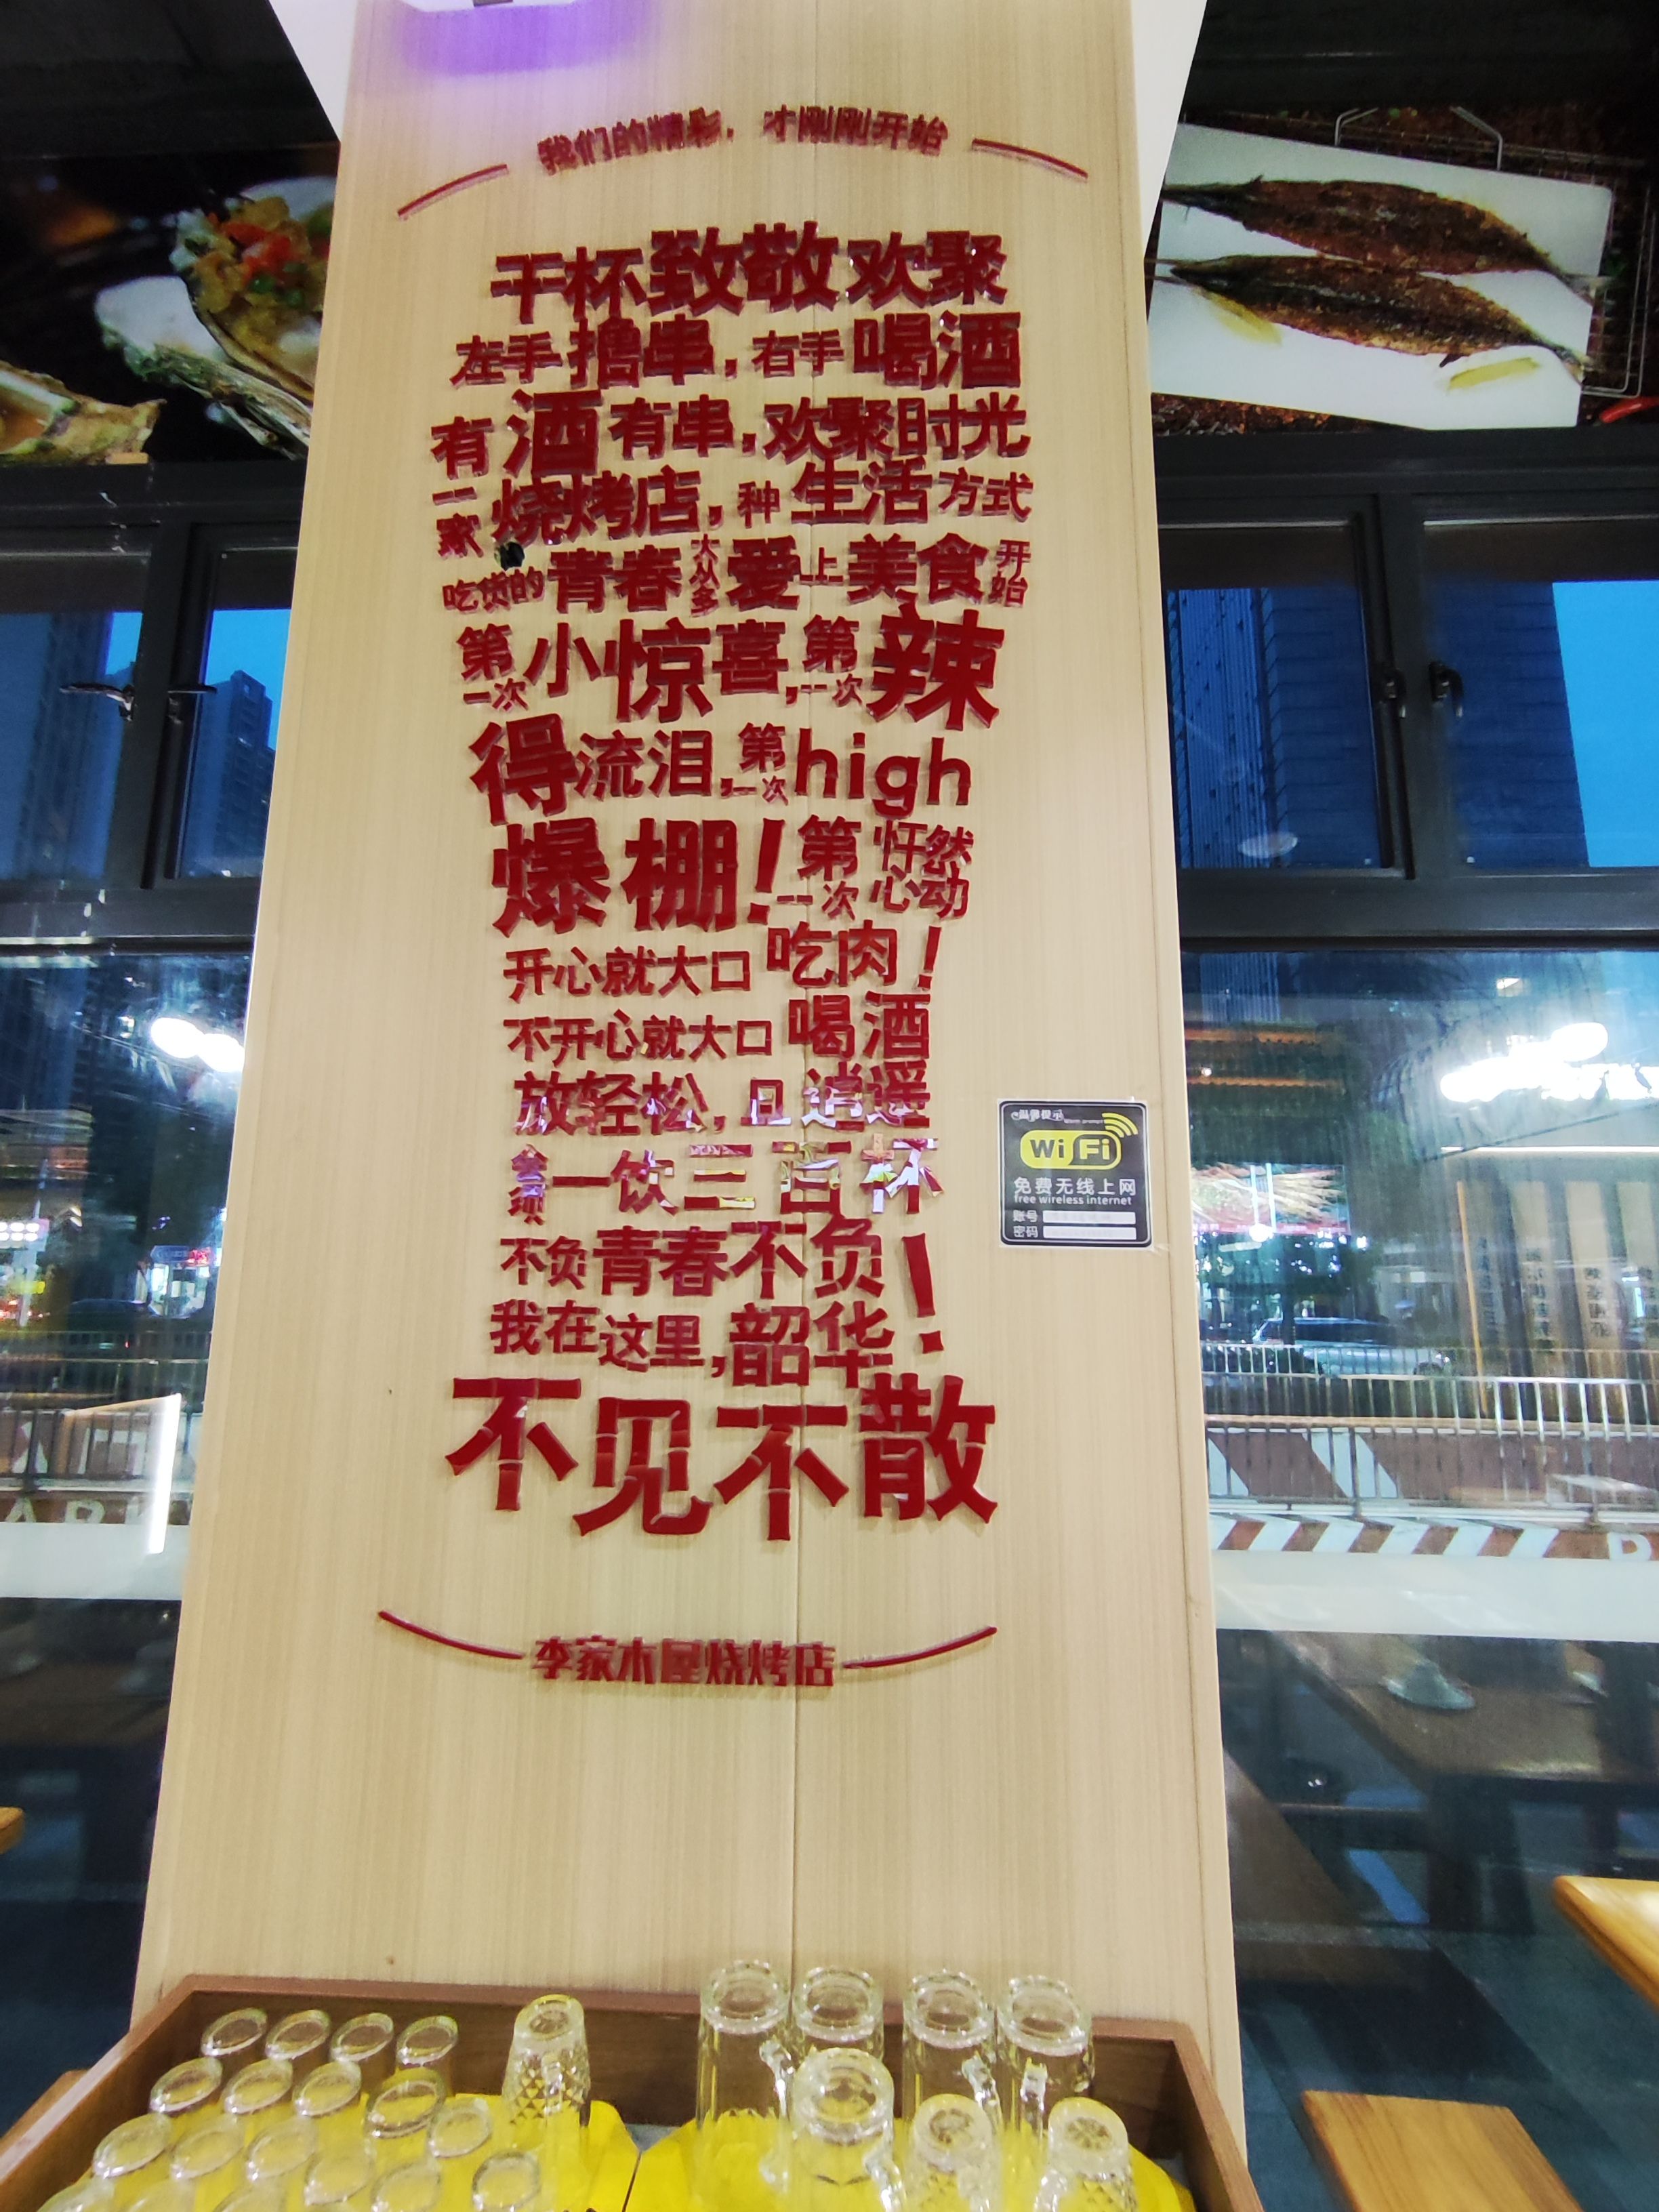 我们的精彩，才刚刚开始
干杯致敬欢聚
左手撸串，右手喝酒
有酒有串，欢聚时光
一家烧烤店，种生活方式
吃货的青春大从多爱上美食开始
第一次小惊喜，第一次辣
得流泪，第一次high
爆棚！第一次忏然心动
开心就大口吃肉！
不开心就大口喝酒
放轻松，且逍遥
会须一饮三百杯
不负青春不负！
我在这里，韶华
不见不散
李家木屋烧烤店
温馨提示
Warm prompt
WiFi
免费无线上网
free wireless internet
账号
密码